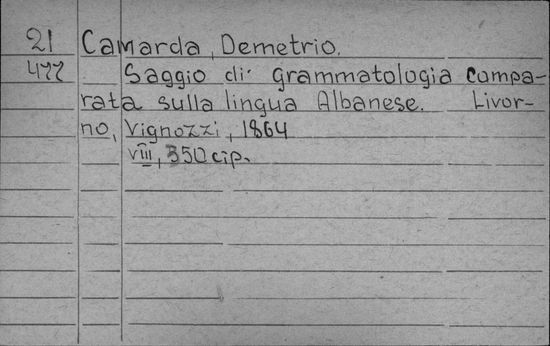 21 Camarda, Demetrio.
477 Saggio di grammatologia compa-
rata sulla lingua Albanese. Livor-
no, Vignozzi, 1864
VIII, 350 cip.